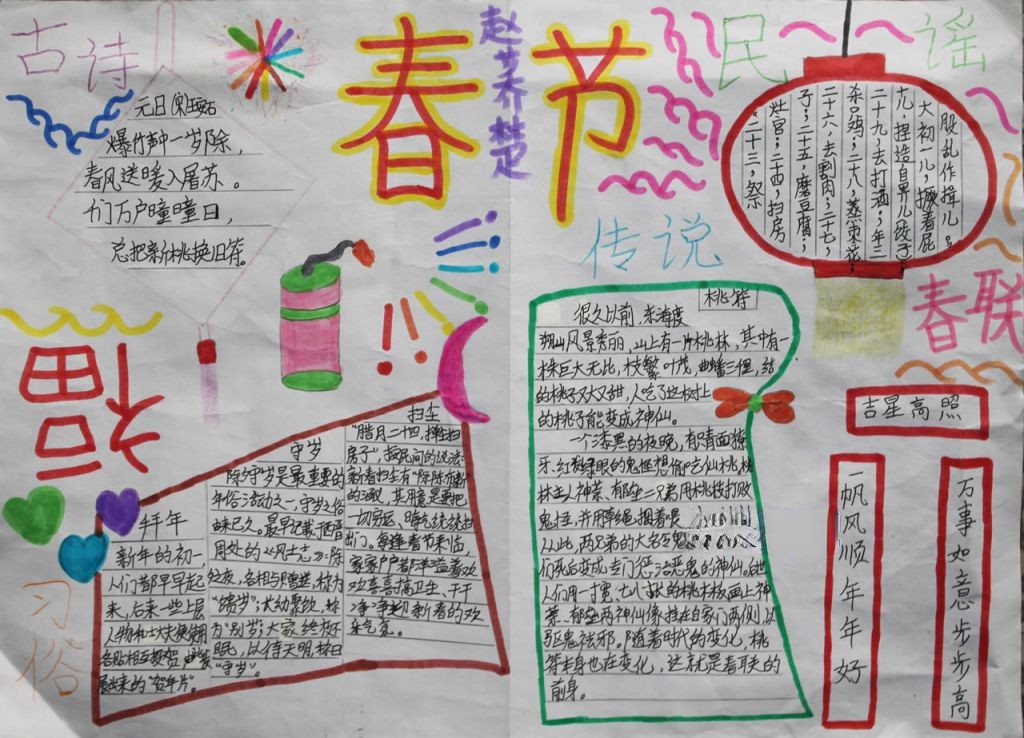 古诗
春节
赵艺乔楚
民谣
元日
爆竹声中一岁除，
春风送暖入屠苏。
们万户曈曈日，
总把新桃换旧符。
二十三，祭
灶官；二十四，扫房
子；二十五，磨豆腐；
二十六，去割肉；二十七，
杀只鸡；二十八，蒸枣花；
二十九，去打酒；年三
十儿，捏造自界儿饺子；
大初一儿，撅着屁
股乱作揖儿。
传说
桃符
很久以前，东海度
朔山风景秀丽，山上有一片桃林，其中有一
株巨大无比，枝繁叶茂，曲蟠三里，结
的桃子又大又甜，人吃了这树上
的桃子能变成神仙。
一个漆黑的夜晚，有青面獠
牙、红发绿眼的鬼怪想偷吃仙桃，桃
林主人神荼、郁垒二兄弟用桃枝打败
鬼怪，并用草绳捆着喂
从此，两兄弟的大名
们死后变成专门惩治恶鬼的神仙。
人们用一寸宽、七八寸的桃木板画上神
荼、郁垒两神仙像挂在自家门两侧，以
驱鬼祛邪。随着时代的变化，桃
符本身也在变化，这就是春联的
前身。
春联
吉星高照
一帆风顺年年好
万事如意步步高
福
习俗
拜年
新年的初一，
人们都早早起
来，后来一些上层
人物和士大夫便
各贴相互投贺
展出来的“贺年片”。
守岁
除夕守岁是最重要的
年俗活动之一，守岁之俗
由来已久。最早记载于西晋
周处的《风土志》：除
夕之夜，各相与赠送，称为
“馈岁”；
为“别岁”；大家终夜不
眠，以待天明，称曰
“守岁”。
扫尘
“腊月二十四，掸尘扫
房子”，据民间的说法：
新春扫尘有“除陈布新”
的涵义，其用意是要把
一切穷运、晦气统统扫
出门。每逢春节来临，
家家户户都洋溢着欢
欢喜喜搞卫生、干干
净净迎新春的欢
乐气氛。